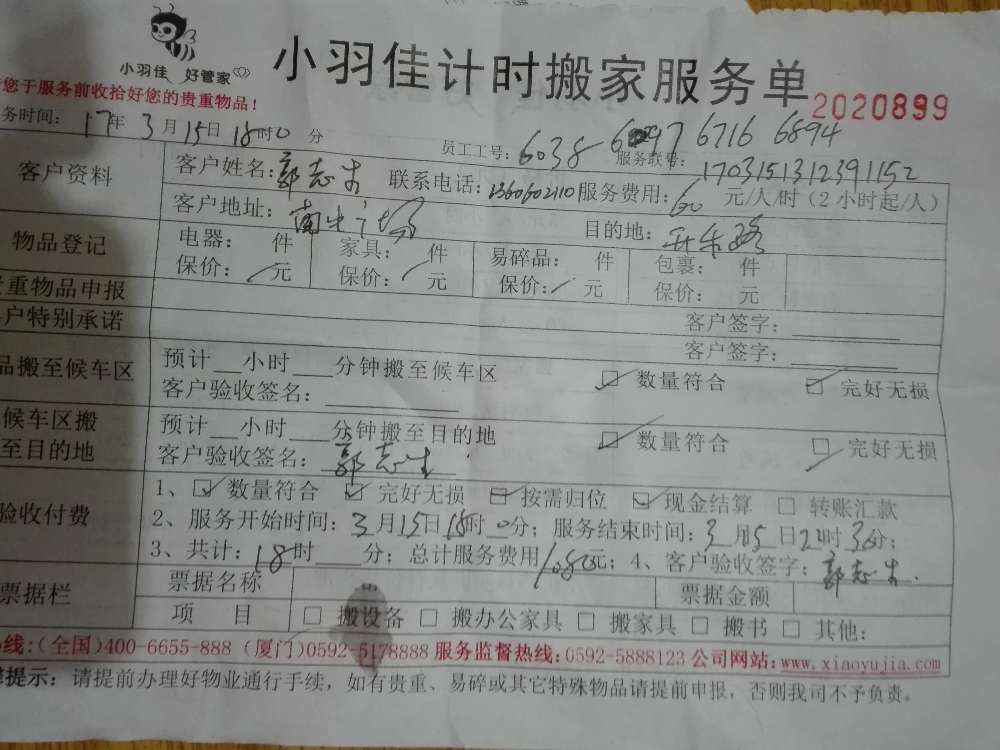 小羽佳 好管家
小羽佳计时搬家服务单
2020899
您于服务前收拾好您的贵重物品！
务时间： 17年 3月15日 18时0分 员工工号：6038 6097 6716 6894
服务联单： 1703151312391152
客户资料 客户姓名： 联系电话：1360602110 服务费用：60 元/人/时（2小时起/人）
客户地址： 目的地：
物品登记 电器： 件 家具： 件 易碎品： 件 包裹： 件
保价： 元 保价： 元 保价： 元 保价： 元
重物品申报 客户签字：
户特别承诺 客户签字：
品搬至候车区 预计__小时___分钟搬至候车区 ☑ 数量符合 ☑ 完好无损
客户验收签名：
候车区搬至目的地 预计__小时___分钟搬至目的地 ☑ 数量符合 ☑ 完好无损
客户验收签名：
验收付费 1、☑ 数量符合 ☑ 完好无损 ☑ 按需归位 ☑ 现金结算 □ 转账汇款
2、服务开始时间：3月15日18时0分；服务结束时间：3月15日 时30分；
3、共计：18时 分；总计服务费用1080元；4、客户验收签字：
票据栏 票据名称 票据金额
项 目 □ 搬设备 □ 搬办公家具 □ 搬家具 □ 搬书 □ 其他：
线：（全国）400-6655-888 （厦门）0592-5178888 服务监督热线：0592-5888123 公司网站：www.xiaoyujia.com
提示：请提前办理好物业通行手续，如有贵重、易碎或其它特殊物品请提前申报，否则我司不予负责。